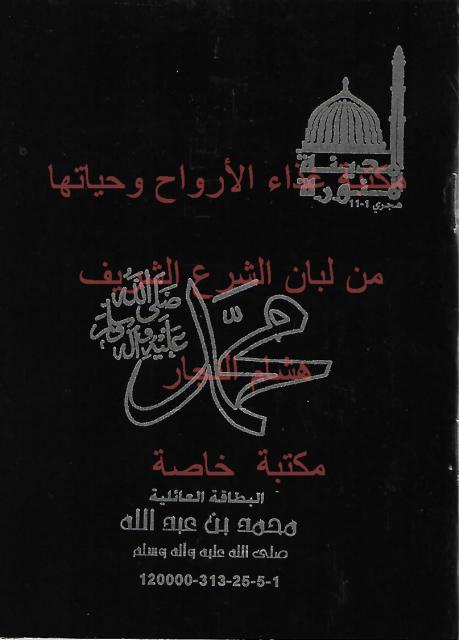 مدينة
منورة
هجري 1-11
مكتبة غذاء الأرواح وحياتها
من لبان الشرع الشريف
محمد
صلى الله عليه وآله وسلم
هشام النجار
مكتبة خاصة
البطاقة العائلية
محمد بن عبد الله
صلى الله عليه وآله وسلم
120000-313-25-5-1